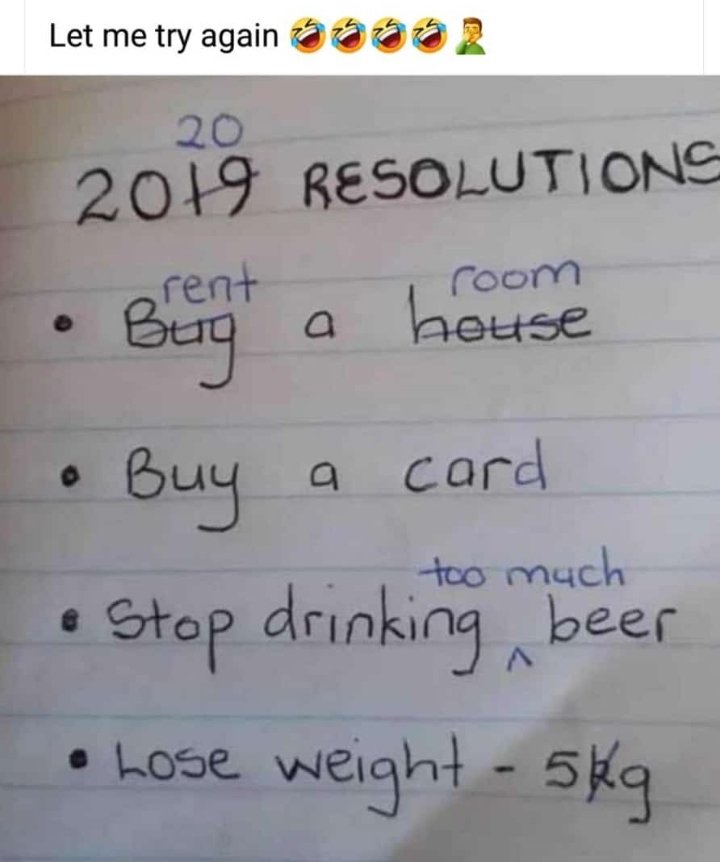 Let me try again 🤣🤣🤣🤣🤦‍♂️
20
2019 RESOLUTIONS
rent room
• Buy a house
• Buy a card
too much
• Stop drinking ^ beer
• Lose weight - 5kg